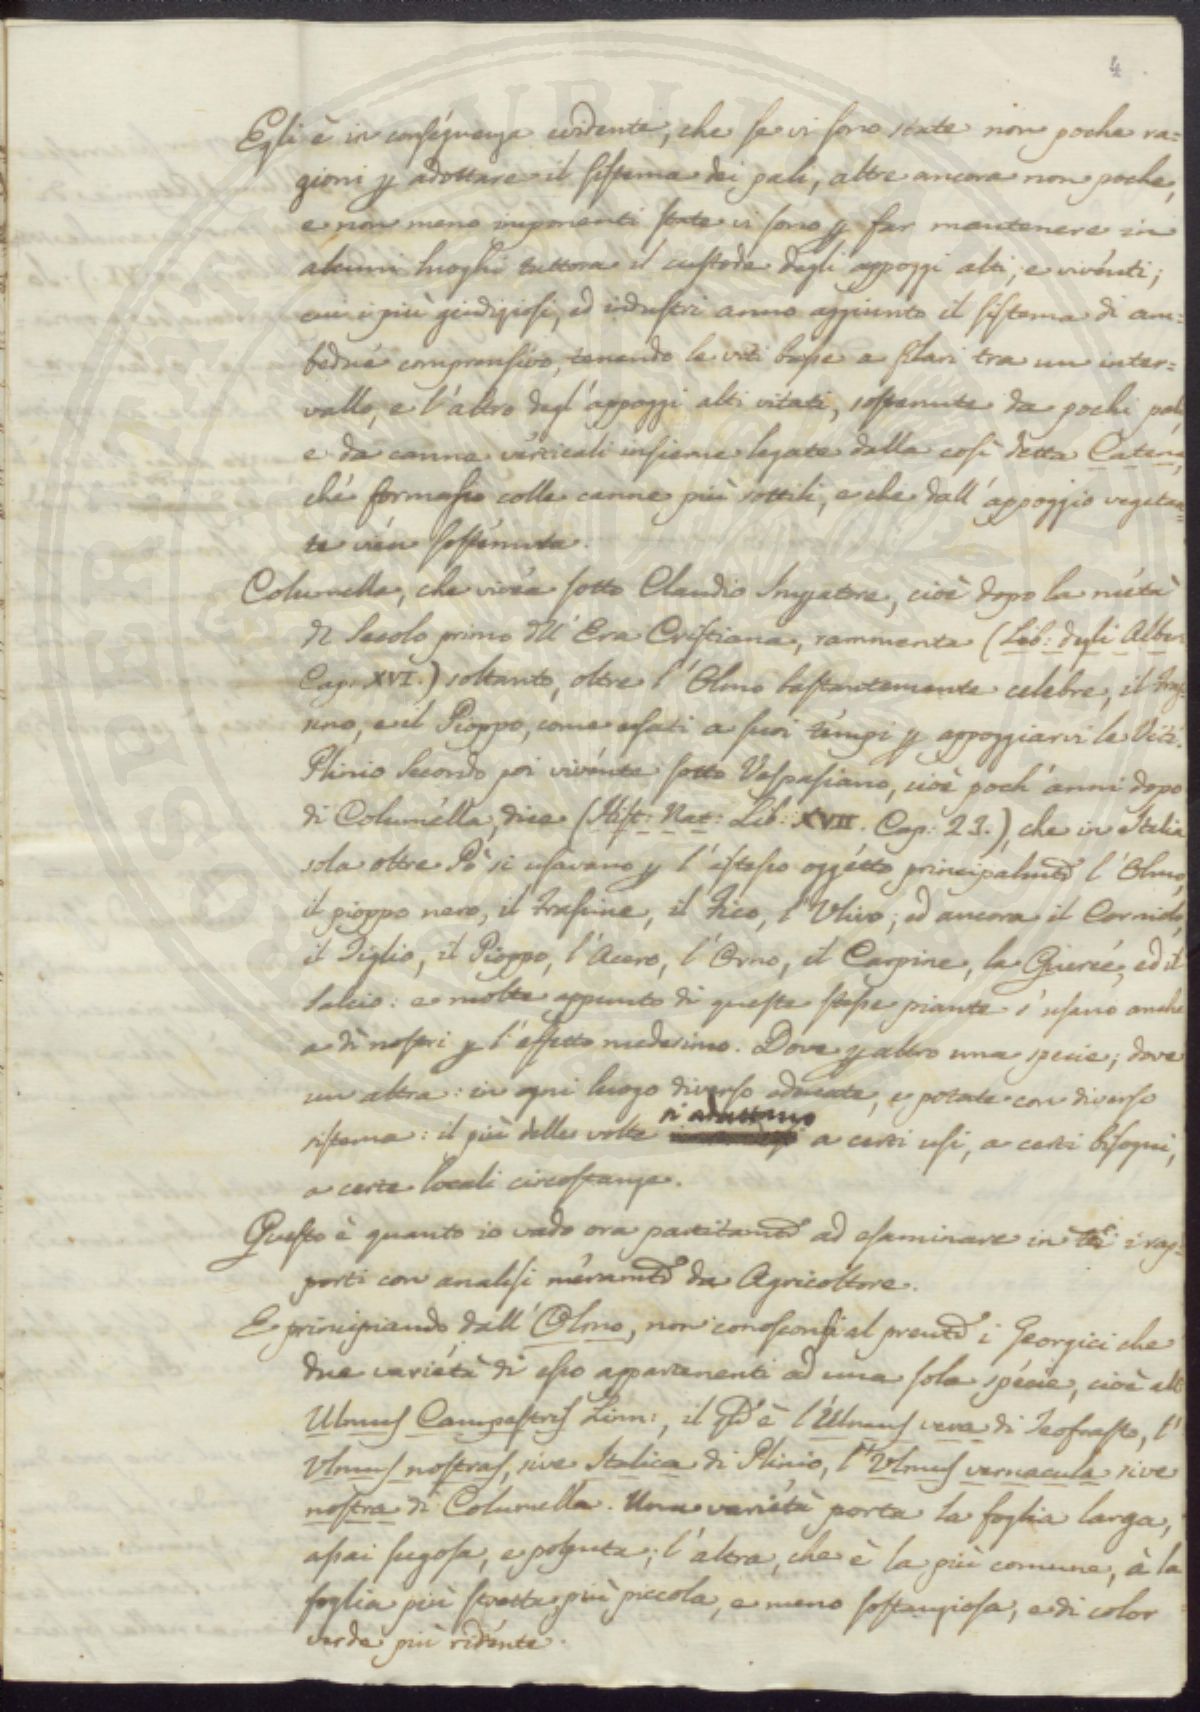 4
Egli è in conseguenza evidente, che se vi sono state non poche ra=
gioni p adottare il sistema dei pali, altre ancora non poche,
e non meno imponenti state vi sono p far mantenere in
alcuni luoghi tuttora il custode degli appoggi alti, e viventi;
cui i più giudiziosi, ed industri anno aggiunto il sistema di am=
bedue comprensivo, tenendo le viti basse a filari tra un inter=
vallo, e l'altro degl'appoggi alti vitati, sostenute da pochi pali
e da canne verticali insieme legate dalla così detta Catena,
che formasi colle canne più sottili, e che dall'appoggio vegetan=
te vien sostenuta.
Columella, che vivea sotto Claudio Impatore, cioè dopo la metà
dl Secolo primo dll'Era Cristiana, rammenta (Lib: degli Alber
Cap: XVI.) soltanto, oltre l'Olmo bastantemente celebre, il Fras=
sino, e il Pioppo, come usati a suoi tempi p appoggiarvi le Viti.
Plinio Secondo poi vivente sotto Vespasiano, cioè poch'anni dopo
di Columella, dice (Hist: Nat: Lib: XVII. Cap: 23.), che in Italia
sola oltre Pò si usavano p l'istesso oggetto principalmte l'Olmo,
il pioppo nero, il Frassine, il Fico, l'Ulivo; ed ancora il Corniolo,
il Tiglio, il Pioppo, l'Acero, l'Orno, il Carpine, la Querce, ed il
Salcio: e molte appunto di queste stesse piante s'usano anche
a dì nostri p l'effetto medesimo. Dove p altro una specie; dove
un altra: in ogni luogo diverso educate, e potate con diverso
si adattano
sistema: il più delle volte a certi usi, a certi bisogni,
a certe locali circostanze.
Questo è quanto io vado ora partitamte ad esaminare in tti i rap=
porti con analisi meramte da Agricoltore.
E principiando dall'Olmo, non conosconsi al presnte i Georgici che
due varietà di esso appartenenti ad una sola specie, cioè all'
Ulmus Campestris Linn:, il qle è l'Ulmus vera di Teofrasto, l'
Ulmus nostras, sive Italica di Plinio, l'Ulmus vernacula sive
nostra di Columella. Una varietà porta la foglia larga,
assai sugosa, e polputa; l'altra, che è la più comune, à la
foglia più stretta, più piccola, e meno sostanziosa, e di color
verde più ridente.